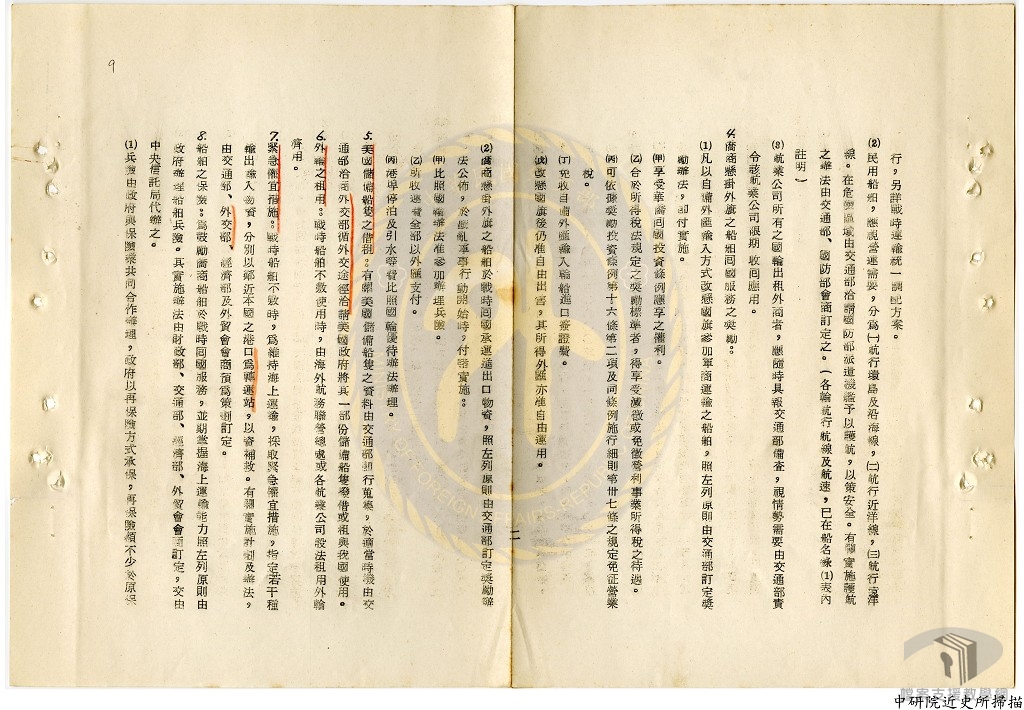 行，另詳戰時運輸統一調配方案。
(2)民用船舶，應視營運需要，分為㈠航行環島及沿海線，㈡航行近洋線，㈢航行遠洋
線。在危險區域由交通部洽請國防部派遣護艦予以護航，以策安全。有關實施護航
之辦法由交通部、國防部會商訂定之。（各輪航行航線及航速，已在船名錄(1)表內
註明）
(3)航業公司所有之國輪出租外商者，應隨時具報交通部備查，視情勢需要由交通部責
令該航業公司限期收回應用。
4.僑商懸掛外旗之船舶回國服務之獎勵：
(1)凡以自備外匯輸入方式改懸國旗參加軍商運輸之船舶，照左列原則由交通部訂定獎
勵辦法，即付實施。
㈙可享受華僑回國投資條例應享之權利。
㈚合於所得稅法規定之獎勵標準者，得享受減徵或免徵營利事業所得稅之待遇。
㈛可依據獎勵投資條例第十六條第二項及同條例施行細則第卅七條之規定免征營業
稅。
㈜免收自備外匯輸入輪船進口簽證費。
㈝改懸國旗後仍准自由出售，其所得外匯亦准自由運用。
(2)僑商懸外旗之船舶於戰時回國承運進出口物資，照左列原則由交通部訂定獎勵辦
法公佈，於戡亂軍事行動開始時，付諸實施：
㈙比照國輪辦法准參加辦理兵險。
㈚所收運費全部以外匯支付。
㈛港埠停泊及引水等費比照國輪優待辦法辦理。
5.美國儲備船隻之借租：有關美國儲備船隻之資料由交通部逕行蒐集，於適當時機由交
通部洽商外交部循外交途徑洽請美國政府將其一部份儲備船隻發借或租與我國使用。
6.外輪之租用：戰時船舶不敷使用時，由海外航務聯營總處或各航業公司設法租用外輪
濟用。
7.緊急權宜措施：戰時船舶不敷時，為維持海上運輸，採取緊急權宜措施，指定若干種
輸出輸入物資，分別以鄰近本國之港口為轉運站，以資補救。有關實施計劃及辦法，
由交通部、外交部、經濟部及外貿會會商預為策劃訂定。
8.船舶之保險：為鼓勵僑商船舶於戰時回國服務，並期掌握海上運輸能力照左列原則由
政府辦理船舶兵險。其實施辦法由財政部、交通部、經濟部、外貿會會同訂定，交由
中央信託局代辦之。
(1)兵險由政府與保險業共同合作辦理，政府以再保險方式承保，再保險額不少於原保
二
9
檔案支援教學網
中研院近史所掃描